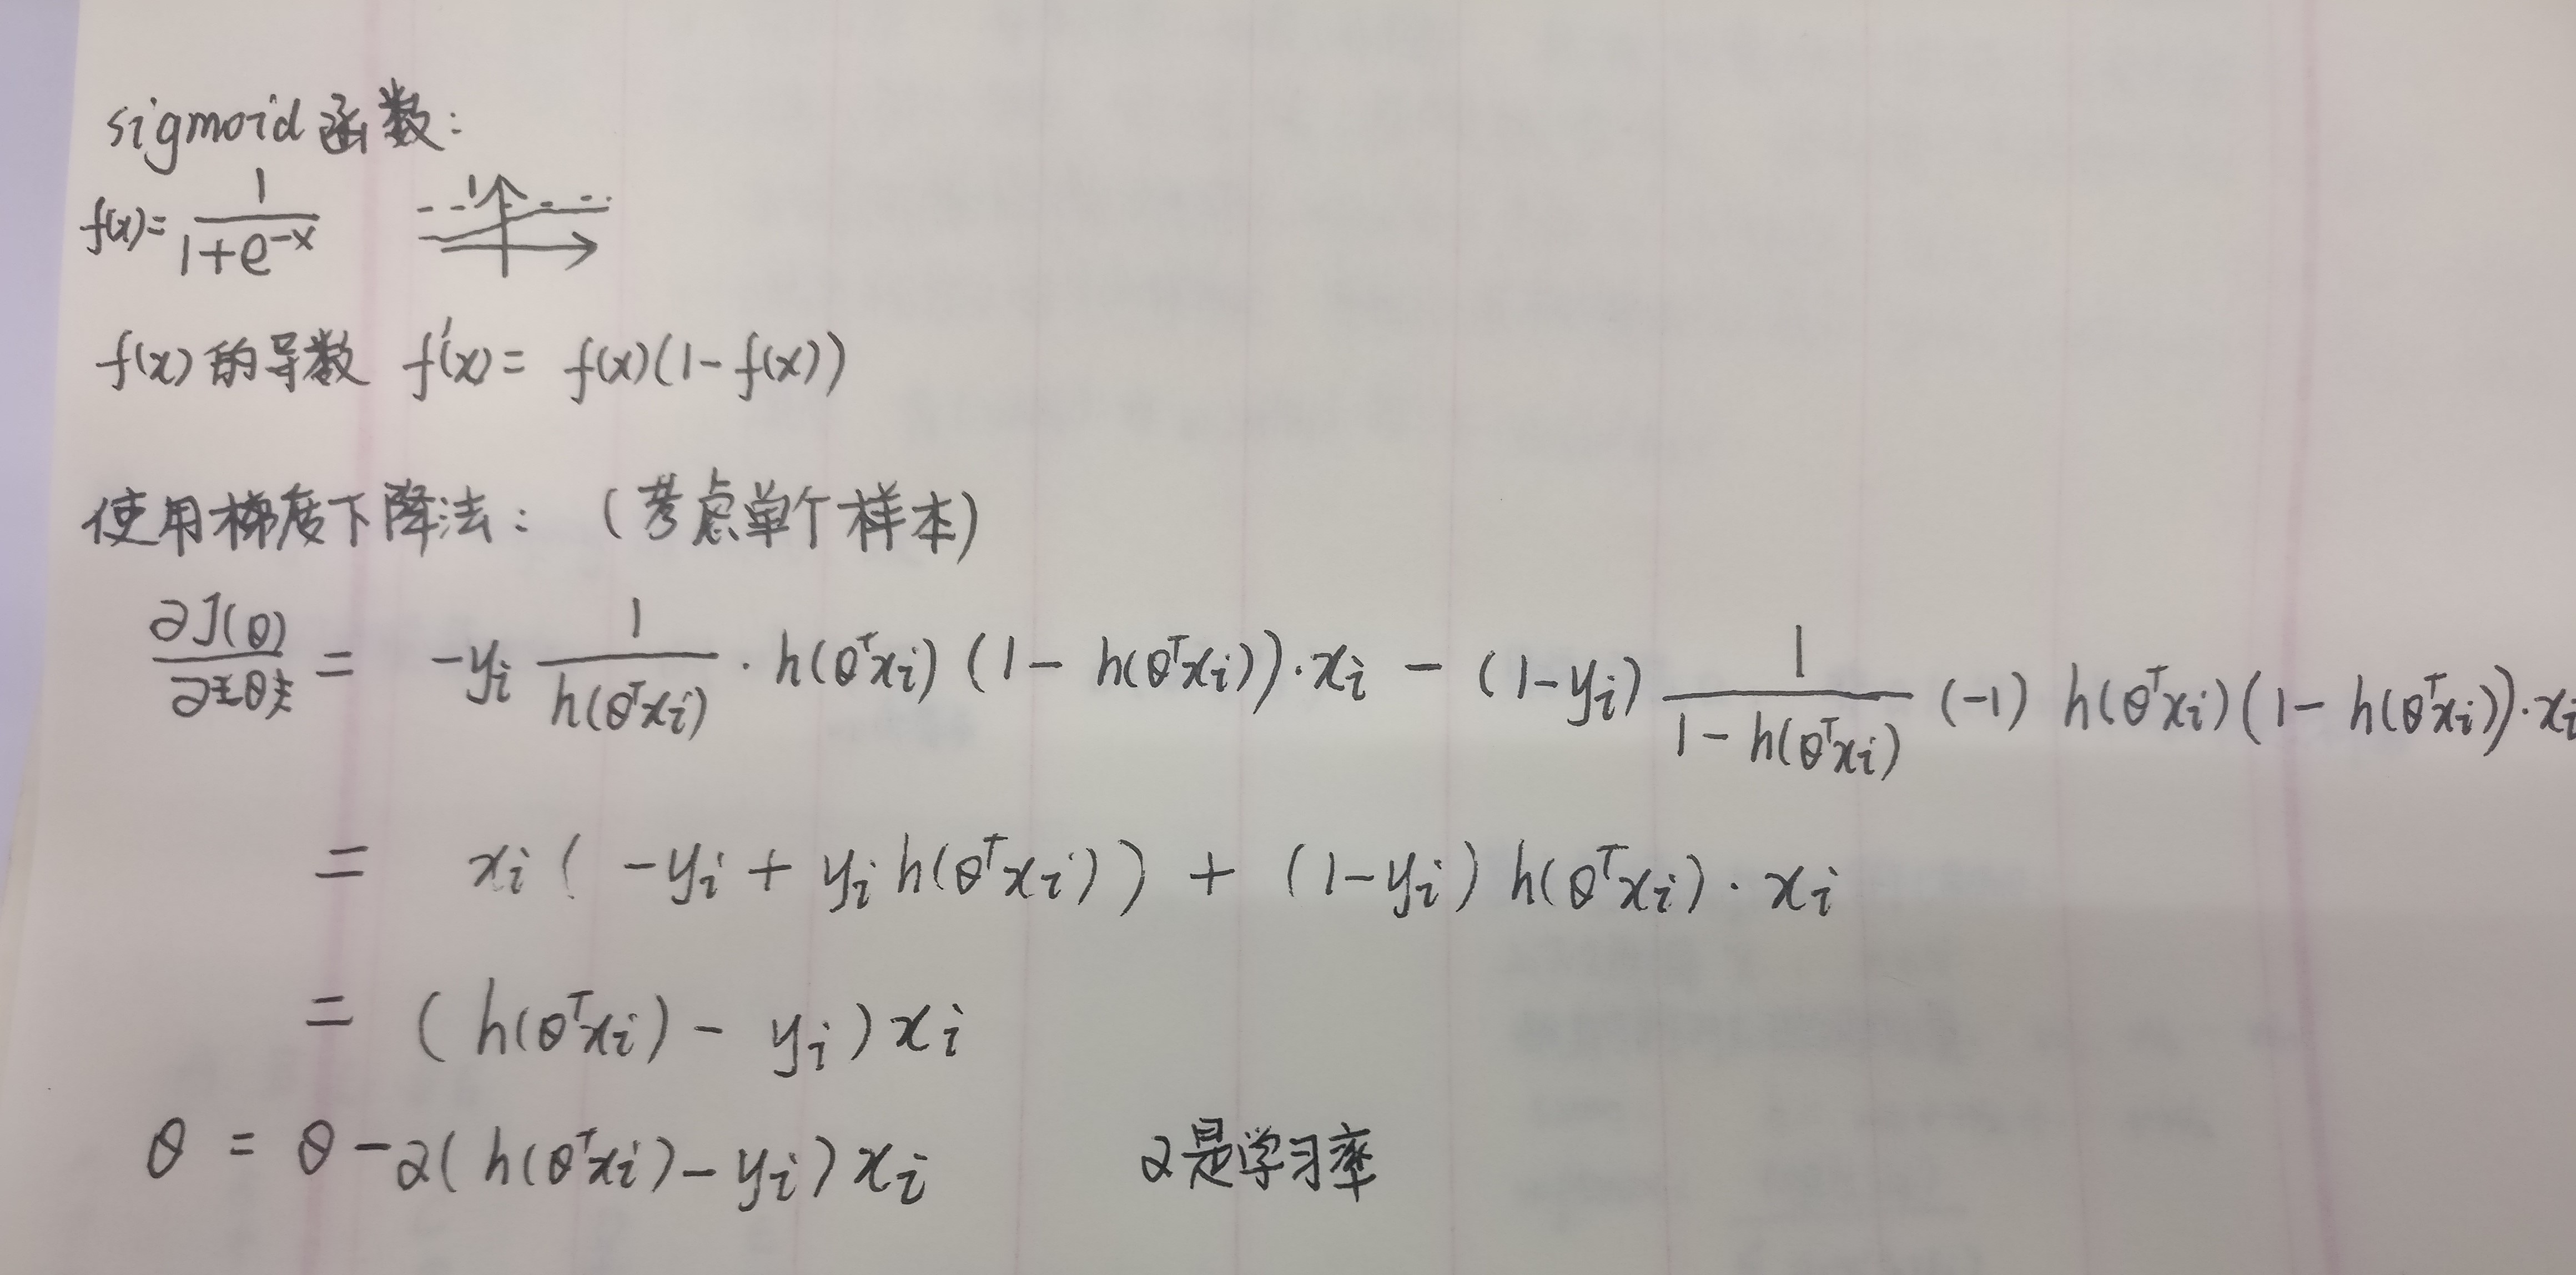 sigmoid 函数:
f(x)= 1/(1+e^{-x}) 1
f(x) 的导数 f'(x) = f(x)(1-f(x))
使用梯度下降法: (考虑单个样本)
∂J(θ)/∂θ = -y_i 1/h(θ^T x_i) · h(θ^T x_i) (1 - h(θ^T x_i)) · x_i - (1-y_i) 1/(1 - h(θ^T x_i)) (-1) h(θ^T x_i)(1 - h(θ^T x_i)) · x_i
= x_i ( -y_i + y_i h(θ^T x_i)) + (1-y_i) h(θ^T x_i) · x_i
= (h(θ^T x_i) - y_i) x_i
θ = θ - α(h(θ^T x_i) - y_i) x_i α是学习率